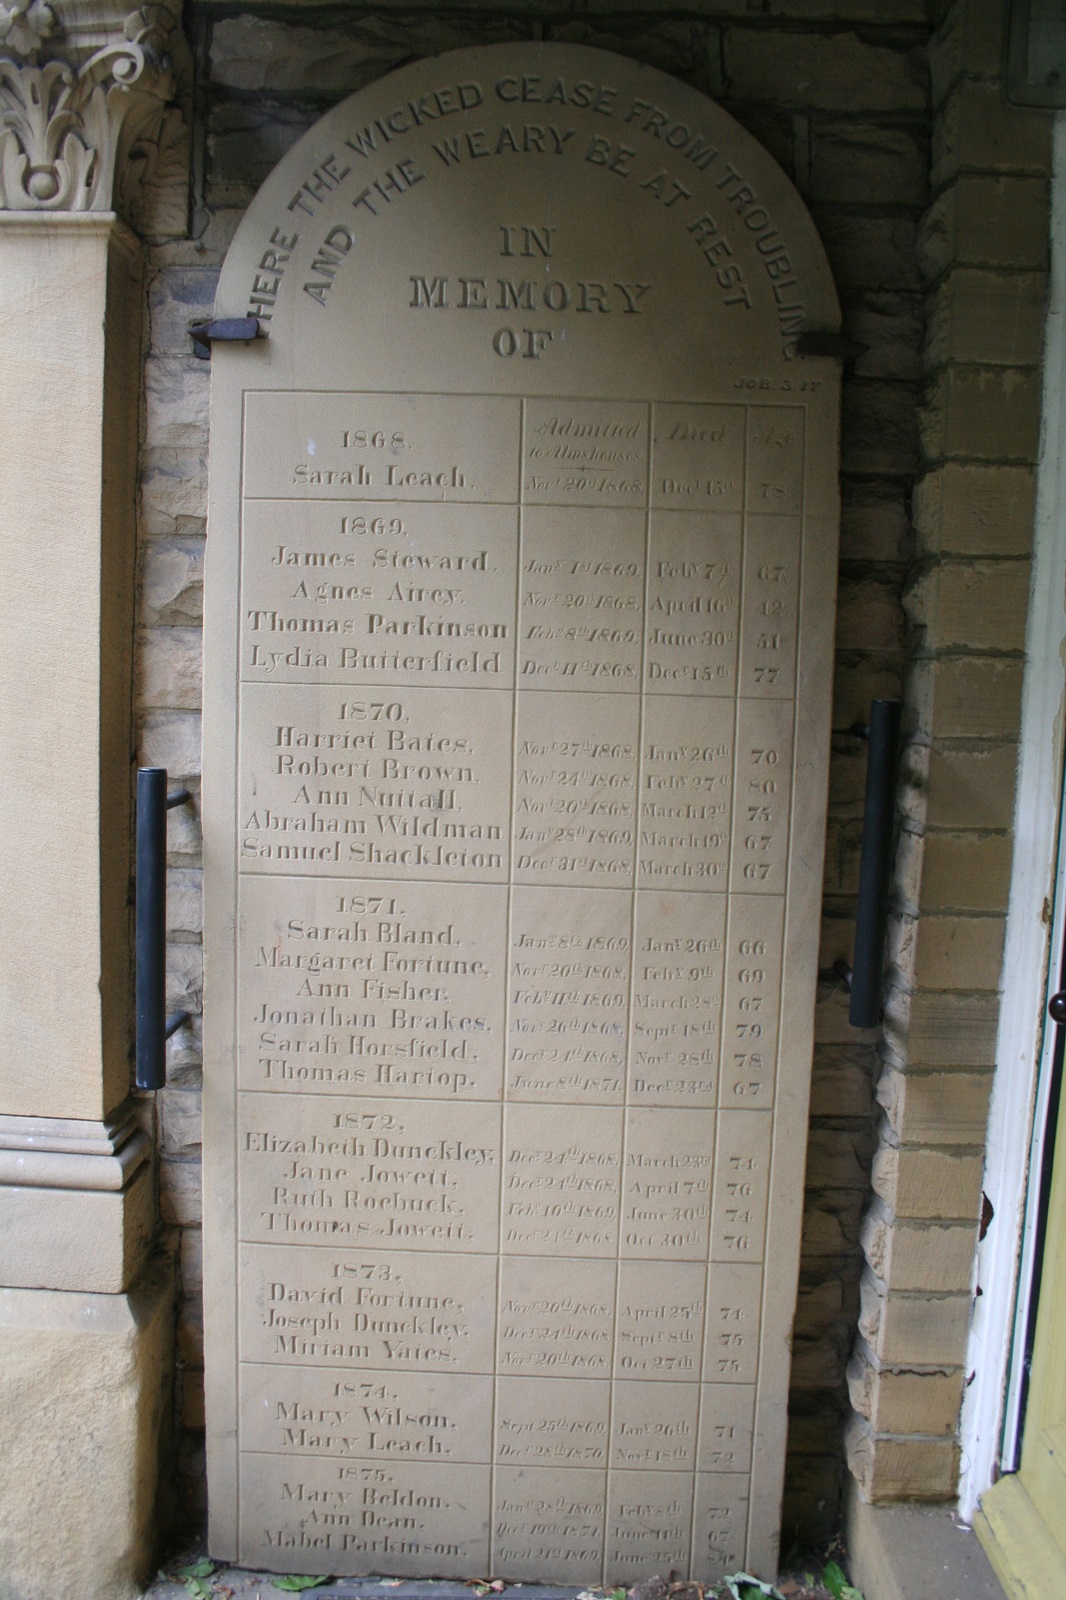 HERE THE WICKED CEASE FROM TROUBLING
AND THE WEARY BE AT REST
IN
MEMORY
OF
JOB. 3.17.
1868. Admitted to Almshouses. Died Age
Sarah Leach. Novr 20th 1868. Decr 15th 78
1869.
James Steward. Jany 1st 1869. Feby 7th 67
Agnes Airey. Novr 20th 1868. April 16th 42
Thomas Parkinson Feby 8th 1869. June 30th 51
Lydia Butterfield Decr 11th 1868. Decr 15th 77
1870.
Harriet Bates. Novr 27th 1868. Jany 26th 70
Robert Brown. Novr 24th 1868. Feby 27th 80
Ann Nuttall. Novr 20th 1868. March 12th 75
Abraham Wildman Jany 28th 1869. March 19th 67
Samuel Shackleton Decr 31st 1868. March 30th 67
1871.
Sarah Bland. Jany 8th 1869. Jany 26th 66
Margaret Fortune. Novr 20th 1868. Feby 9th 69
Ann Fisher. Feby 11th 1869. March 28th 67
Jonathan Brakes. Novr 26th 1868. Septr 18th 79
Sarah Horsfield. Decr 24th 1868. Novr 28th 78
Thomas Hartop. June 8th 1871. Decr 23rd 67
1872.
Elizabeth Dunckley. Decr 24th 1868. March 23rd 74
Jane Jowett. Decr 24th 1868. April 7th 76
Ruth Roebuck. Feby 10th 1869. June 30th 74
Thomas Jowett. Decr 24th 1868. Oct 30th 76
1873.
David Fortune. Novr 20th 1868. April 25th 74
Joseph Dunckley. Decr 24th 1868. Septr 8th 75
Miriam Yates. Novr 20th 1868. Oct 27th 75
1874.
Mary Wilson. Sept 25th 1869. Jany 26th 71
Mary Leach. Decr 28th 1870. Novr 18th 72
1875.
Mary Beldon. Jany 28th 1869. Feby 8th 72
Ann Dean. Decr 19th 1871. June 11th 67
Mabel Parkinson. April 21st 1869. June 25th